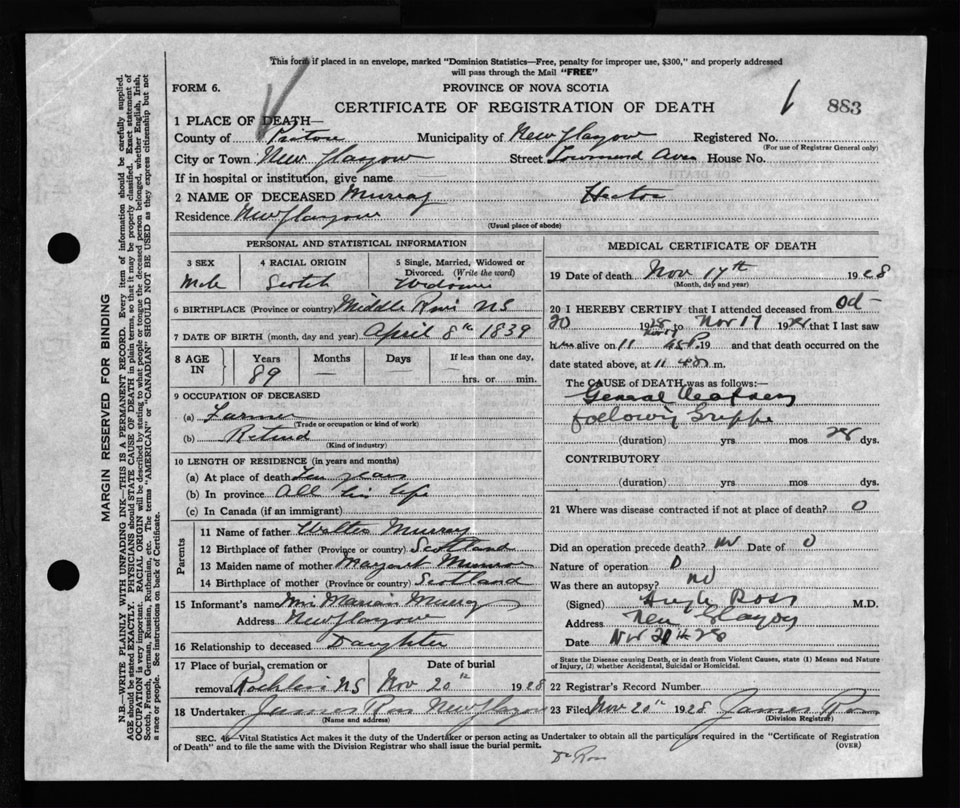 This form if placed in an envelope, marked "Dominion Statistics—Free, penalty for improper use, $300," and properly addressed
will pass through the Mail "FREE"
FORM 6.
PROVINCE OF NOVA SCOTIA
CERTIFICATE OF REGISTRATION OF DEATH
883
1 PLACE OF DEATH—
County of Pictou Municipality of New Glasgow Registered No.
(For use of Registrar General only)
City or Town New Glasgow Street Townsend Ave House No.
If in hospital or institution, give name
2 NAME OF DECEASED Murray Hector
Residence New Glasgow
(Usual place of abode)
PERSONAL AND STATISTICAL INFORMATION
3 SEX
Male
4 RACIAL ORIGIN
Scotch
5 Single, Married, Widowed or
Divorced. (Write the word)
Widower
6 BIRTHPLACE (Province or country) Middle River NS
7 DATE OF BIRTH (month, day and year) April 8th 1839
8 AGE
IN
Years
89
Months
—
Days
If less than one day,
hrs. or min.
9 OCCUPATION OF DECEASED
(a) Farmer
(Trade or occupation or kind of work)
(b) Retired
(Kind of industry)
10 LENGTH OF RESIDENCE (in years and months)
(a) At place of death Ten years
(b) In province All his life
(c) In Canada (if an immigrant)
Parents
11 Name of father Walter Murray
12 Birthplace of father (Province or country) Scotland
13 Maiden name of mother Margaret Munro
14 Birthplace of mother (Province or country) Scotland
15 Informant's name Marian Murray
Address New Glasgow
16 Relationship to deceased Daughter
17 Place of burial, cremation or
removal Rocklin NS
Date of burial
Nov 20th 1928
18 Undertaker James Ross New Glasgow
(Name and address)
MEDICAL CERTIFICATE OF DEATH
19 Date of death Nov 17th 1928
(Month, day and year)
20 I HEREBY CERTIFY that I attended deceased from Oct
20 1928 to Nov 17 1928 that I last saw
him alive on 19 and that death occurred on the
date stated above, at 11 m.
The CAUSE OF DEATH was as follows:—
General Weakness
following Grippe
(duration) yrs mos 28 dys.
CONTRIBUTORY
(duration) yrs. mos. dys.
21 Where was disease contracted if not at place of death? 0
Did an operation precede death? no Date of 0
Nature of operation
Was there an autopsy? no
(Signed) Hugh Ross M.D.
Address New Glasgow
Date Nov 20th 28
State the Disease causing Death, or in death from Violent Causes, state (1) Means and Nature
of Injury, (2) whether Accidental, Suicidal or Homicidal.
22 Registrar's Record Number
23 Filed Nov 20th 1928 James Ross
(Division Registrar)
SEC. 46—Vital Statistics Act makes it the duty of the Undertaker or person acting as Undertaker to obtain all the particulars required in the "Certificate of Registration
of Death" and to file the same with the Division Registrar who shall issue the burial permit.
(OVER)
Dr Ross
MARGIN RESERVED FOR BINDING
N.B.—WRITE PLAINLY WITH UNFADING INK—THIS IS A PERMANENT RECORD. Every item of information should be carefully supplied.
AGE should be stated EXACTLY. PHYSICIANS should STATE CAUSE OF DEATH in plain terms, so that it may be properly classified. Exact statement of
OCCUPATION is very important. RACIAL ORIGIN will be described by stating to what people or tongue the deceased person belonged, whether English, Irish,
Scotch, French, German, Russian, Ruthenian, etc. The terms "AMERICAN" or "CANADIAN" SHOULD NOT BE USED as they express citizenship but not
a race or people. See instructions on back of Certificate.